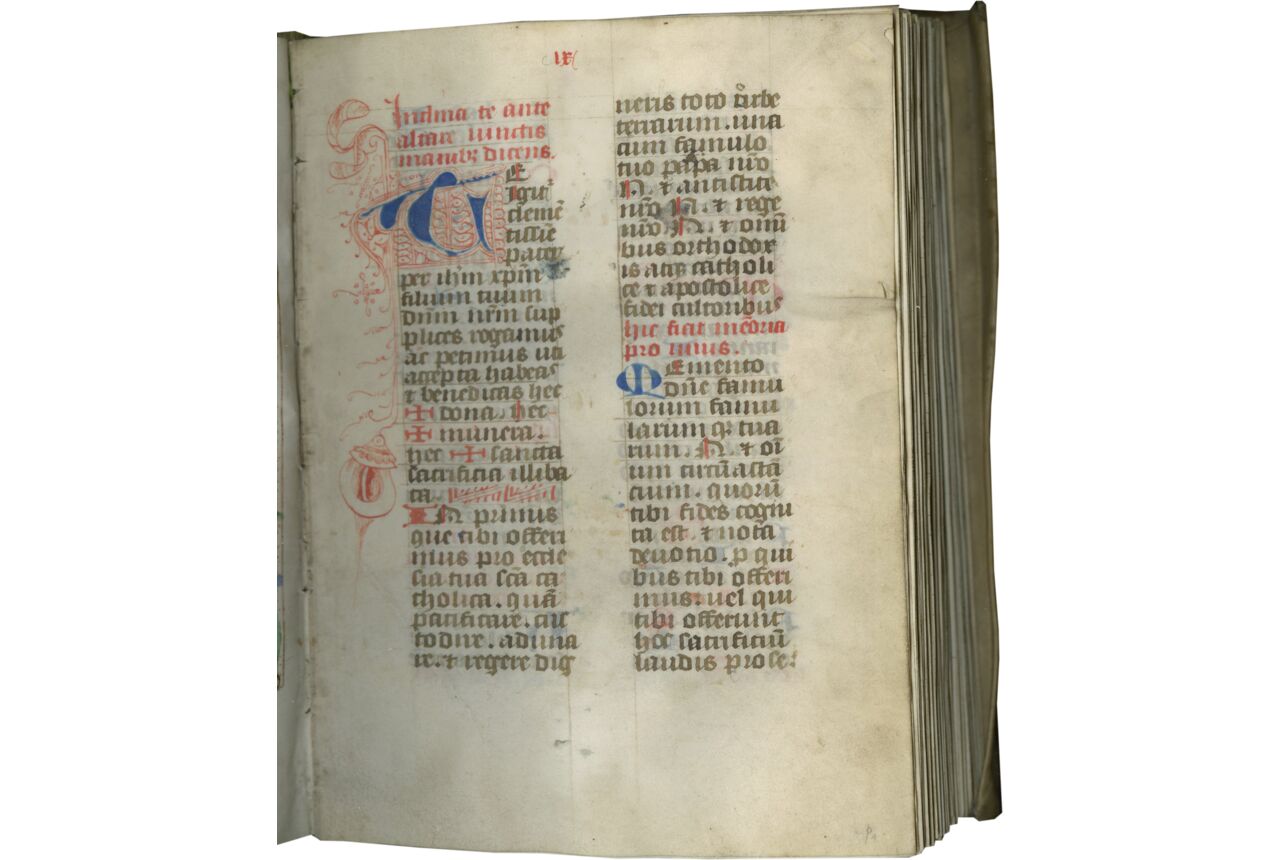 ix
Inclina te ante
altare iunctis
manibꝫ dicens.
TE
igit᷑
clemē
tissīe
pater
per ihm̄ xp̄m
filium tuum
dn̄m nr̄m sup
plices rogamus
ac petimus uti
accepta habeas
⁊ benedicas hec
✠ dona. hec
✠ munera.
hec ✠ sancta
sacrificia illiba
ta.
IN primis
que tibi offeri
mus pro eccle
sia tua sc̄a ca
tholica. quā
pacificare. cus
todire. aduna
re. ⁊ regere dig
neris toto orbe
terrarum. una
cum famulo
tuo papa nr̄o
N. ⁊ antistite
nr̄o N. ⁊ rege
nr̄o N. ⁊ omni
bus orthodox
is atqꝫ catholi
ce ⁊ apostolice
fidei cultoribus
hic fiat mēoria
pro uiuis.
Memento
dn̄e famu
lorum famu
larum qꝫ tua
rum. N. ⁊ oī
um circūastā
cium. quorū
tibi fides cogni
ta est. ⁊ nota
deuotio. ꝑ qui
bus tibi offeri
mus. uel qui
tibi offerunt
hoc sacrificiū
laudis pro se.